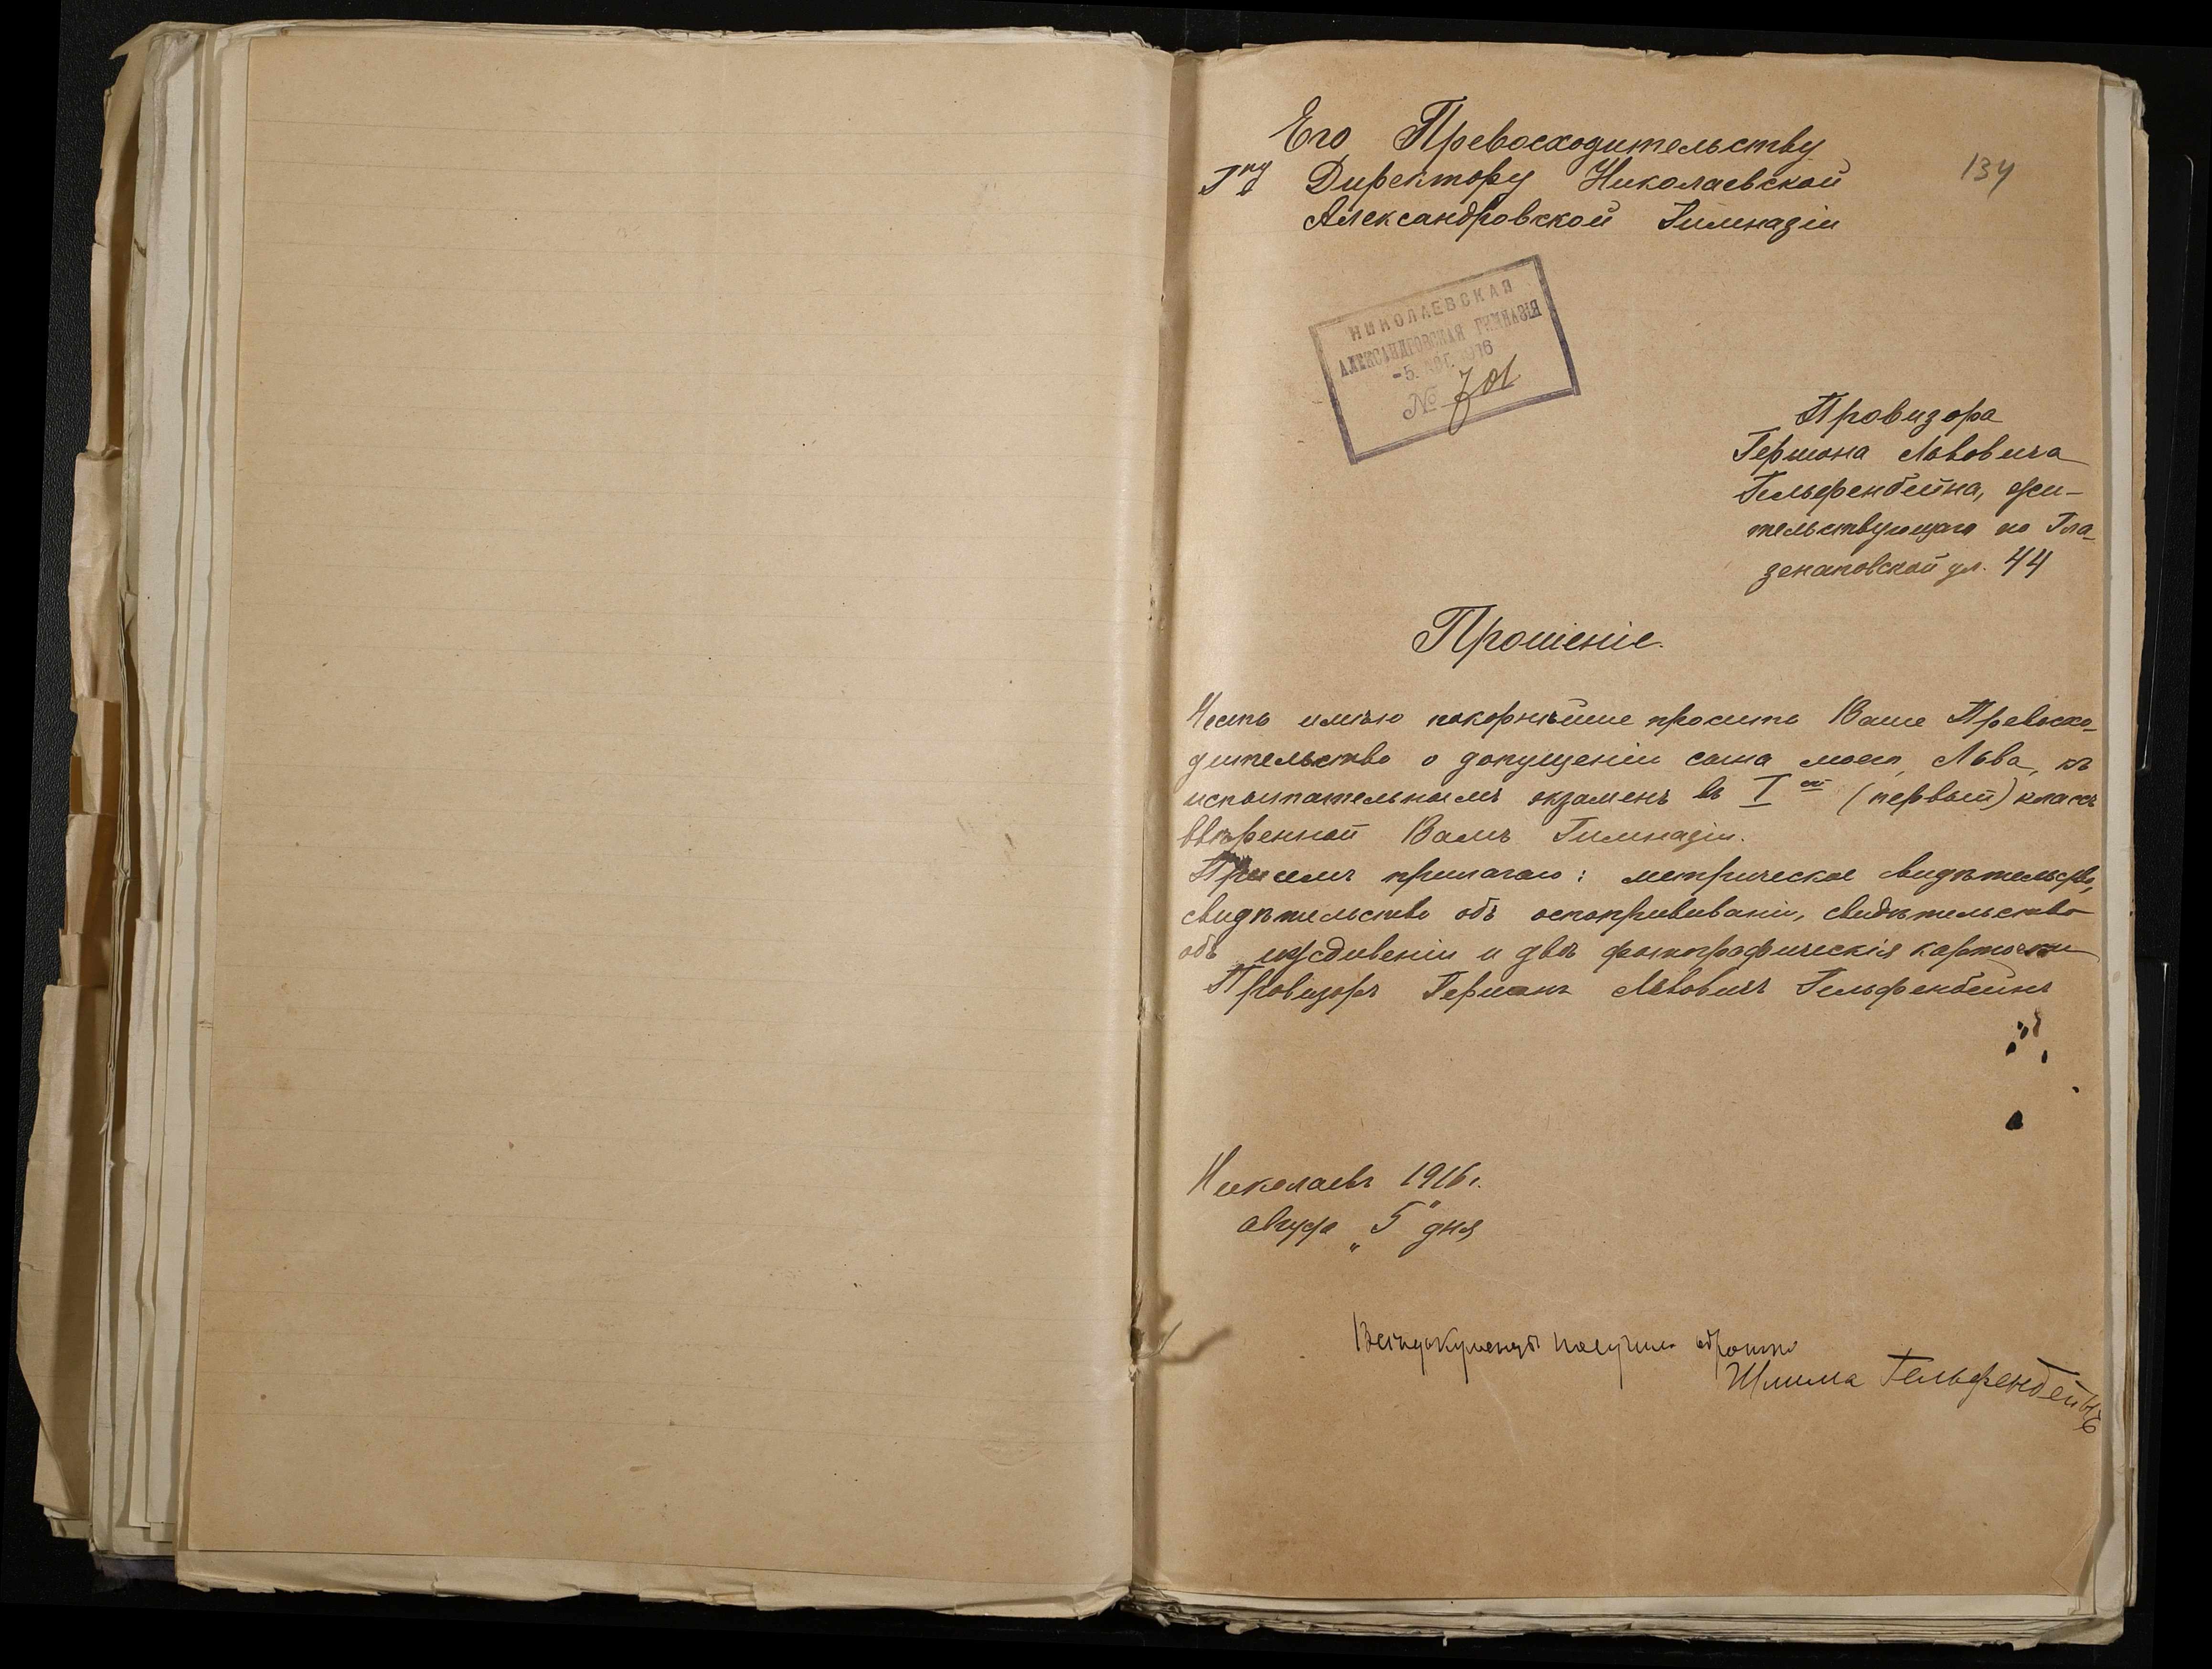 Его Превосходительству
134
Гну Директору Николаевской
Александровской Гимназіи
НИКОЛАЕВСКАЯ
АЛЕКСАНДРОВСКАЯ ГИМНАЗІЯ
-5. АВГ. 1916
№ 701
Провизора
Германа Львовича
Гельфенбейна, жи-
тельствующаго по Гла-
зенаповской ул. 44
Прошеніе.
Честь имѣю покорнѣйше просить Ваше Превосхо-
дительство о допущеніи сына моего, Льва, къ
испытательнымъ экзаменъ въ I ый (первый) классъ
ввѣренной Вамъ Гимназіи.
При семъ прилагаю: метрическое свидѣтельство,
свидѣтельство объ оспопрививаніи, свидѣтельство
объ и двѣ фотографическія карточки
Провизоръ Германъ Львовичъ Гельфенбейнъ
Николаевъ 1916 г.
августа „5" дня
Всѣ документы получилъ обратно
Гельфенбейнъ